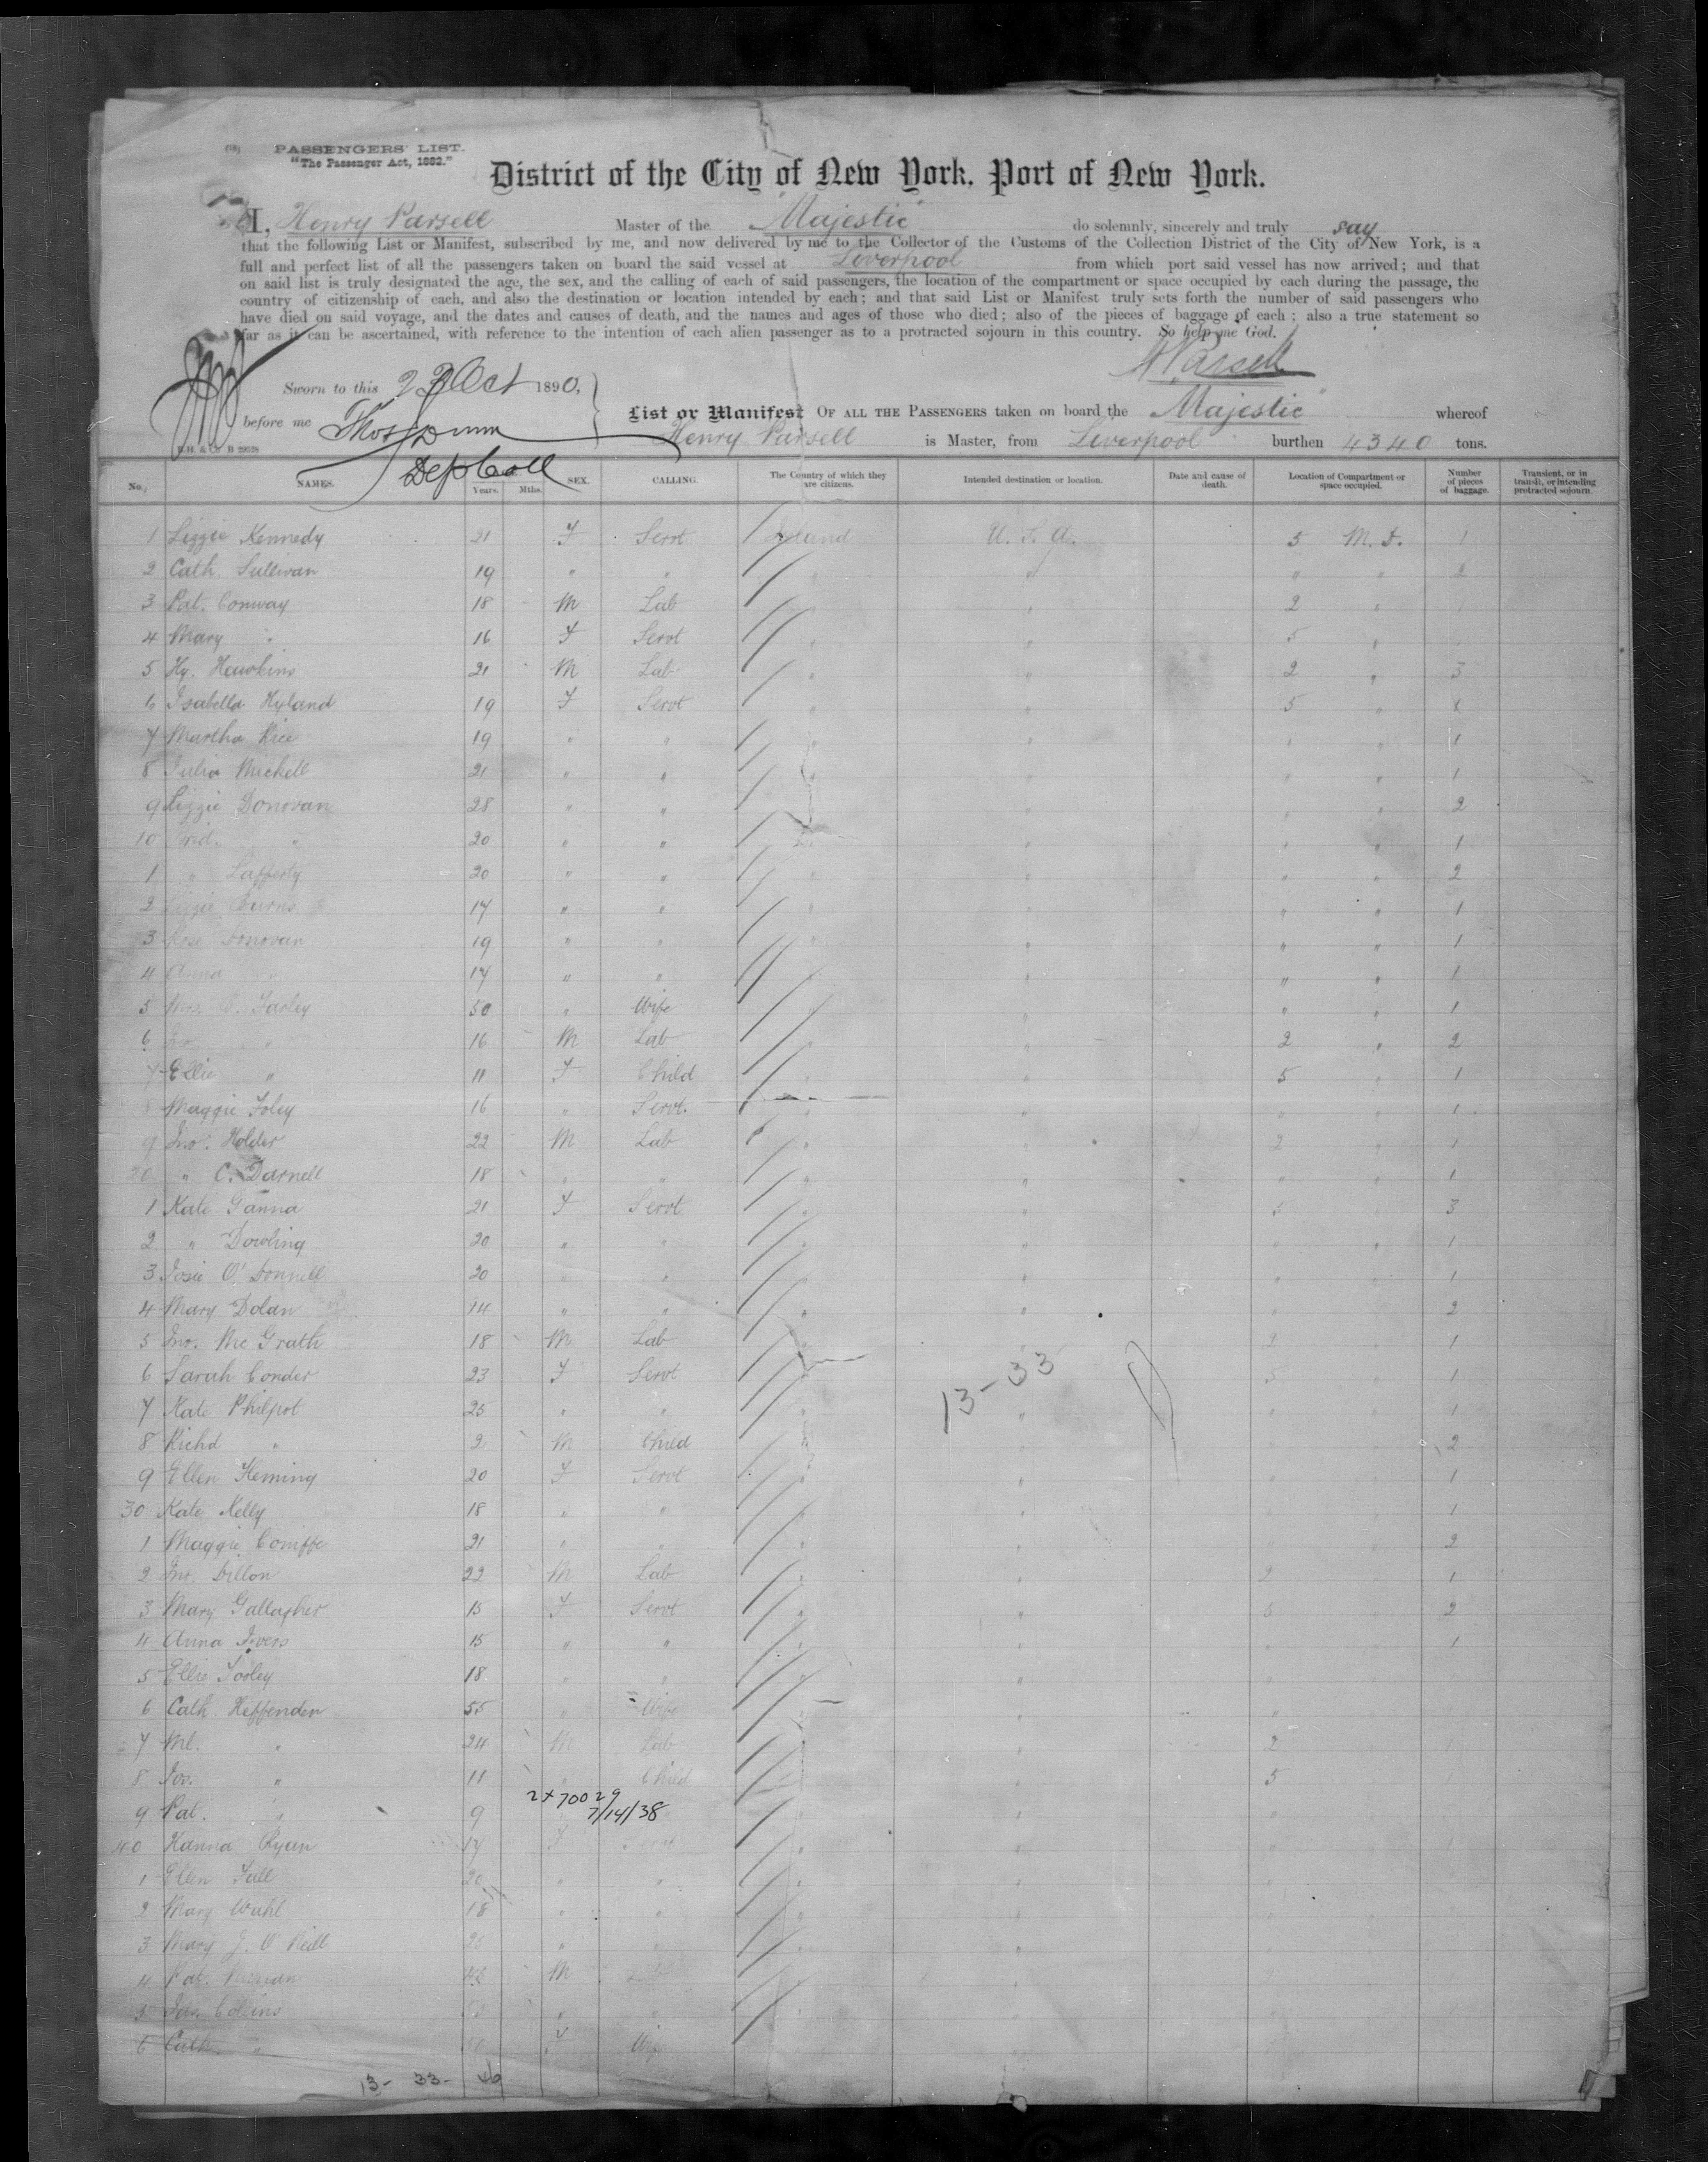 PASSENGERS' LIST.
"The Passenger Act, 1882."
District of the City of New York, Port of New York.
I, Henry Parsell Master of the "Majestic" do solemnly, sincerely and truly say
that the following List or Manifest, subscribed by me, and now delivered by me to the Collector of the Customs of the Collection District of the City of New York, is a
full and perfect list of all the passengers taken on board the said vessel at Liverpool from which port said vessel has now arrived; and that
on said list is truly designated the age, the sex, and the calling of each of said passengers, the location of the compartment or space occupied by each during the passage, the
country of citizenship of each, and also the destination or location intended by each; and that said List or Manifest truly sets forth the number of said passengers who
have died on said voyage, and the dates and causes of death, and the names and ages of those who died; also of the pieces of baggage of each; also a true statement so
far as it can be ascertained, with reference to the intention of each alien passenger as to a protracted sojourn in this country. So help me God.
H Parsell
Sworn to this Oct 1890,
before me Thos
Dep Coll
List or Manifest OF ALL THE PASSENGERS taken on board the "Majestic" whereof
Henry Parsell is Master, from Liverpool burthen 4340 tons.
No. NAMES. Years. Mths. SEX. CALLING. The Country of which they are citizens. Intended destination or location. Date and cause of death. Location of Compartment or space occupied. Number of pieces of baggage. Transient, or in transit, or intending protracted sojourn.
1 Lizzie Kennedy 21 F Servt Ireland U.S.A. 5 1
2 Cath. Sullivan 19 " " " " " " 2
3 Pat. Conway 18 M Lab " " 2 "
4 Mary " 16 F Servt " " 5 "
5 Hy. Hawkins 21 M Lab " " 2 " 3
6 Isabella Hyland 19 F Servt " " 5 "
7 Martha Rice 19 " " " " " " 1
8 Julia Mickell 21 " " " " " " 1
9 Lizzie Donovan 28 " " " " " " 2
10 Brid. " 20 " " " " " " 1
1 " Lafferty 20 " " " " " " 2
2 Lizzie Burns 17 " " " " " " 1
3 Rose Donovan 19 " " " " " " 1
4 Anna " 17 " " " " " " 1
5 Mrs. Farley 50 " Wife " " " " 1
6 " 16 M Lab " " 2 " 2
7 Ellie " 11 F Child " " 5 " 1
8 Maggie Foley 16 " Servt. " " " " 1
9 Jno. Holder 22 M Lab " " 2 " 1
20 " C. Darnell 18 " " " " " " 1
1 Kate Ganna 21 F Servt " " 5 " 3
2 " Dowling 20 " " " " " " 1
3 Josie O'Donnell 20 " " " " " " 1
4 Mary Dolan 14 " " " " " " 2
5 Jno. McGrath 18 M Lab " " 2 " 1
6 Sarah Conder 23 F Servt " " 5 " 1
13-33
7 Kate Philpot 25 " " " " " " 1
8 Richd " 2 M Child " " " " 2
9 Ellen Fleming 20 F Servt " " " " 1
30 Kate Kelly 18 " " " " " " 1
1 Maggie Coniffe 21 " " " " " " 2
2 Jno. Dillon 22 M Lab " " 2 " 1
3 Mary Gallagher 15 F Servt " " 5 " 2
4 Anna Ivers 15 " " " " " " 1
5 Ellie Tooley 18 " " " "
6 Cath. Heffenden 55 " Wife " " "
7 Ml. " 24 M Lab " " 2
8 Jos. " 11 " Child " " 5
2x70029
7/14/38
9 Pat. " 9
40 Hanna Ryan 17 F
1 Ellen Fall 20 " "
2 Mary Wahl 18 " "
3 Mary J. O'Neill " "
4 Pat. M
5 Jas. Collins " "
6 Cath. " F Wife
13- 33- 46